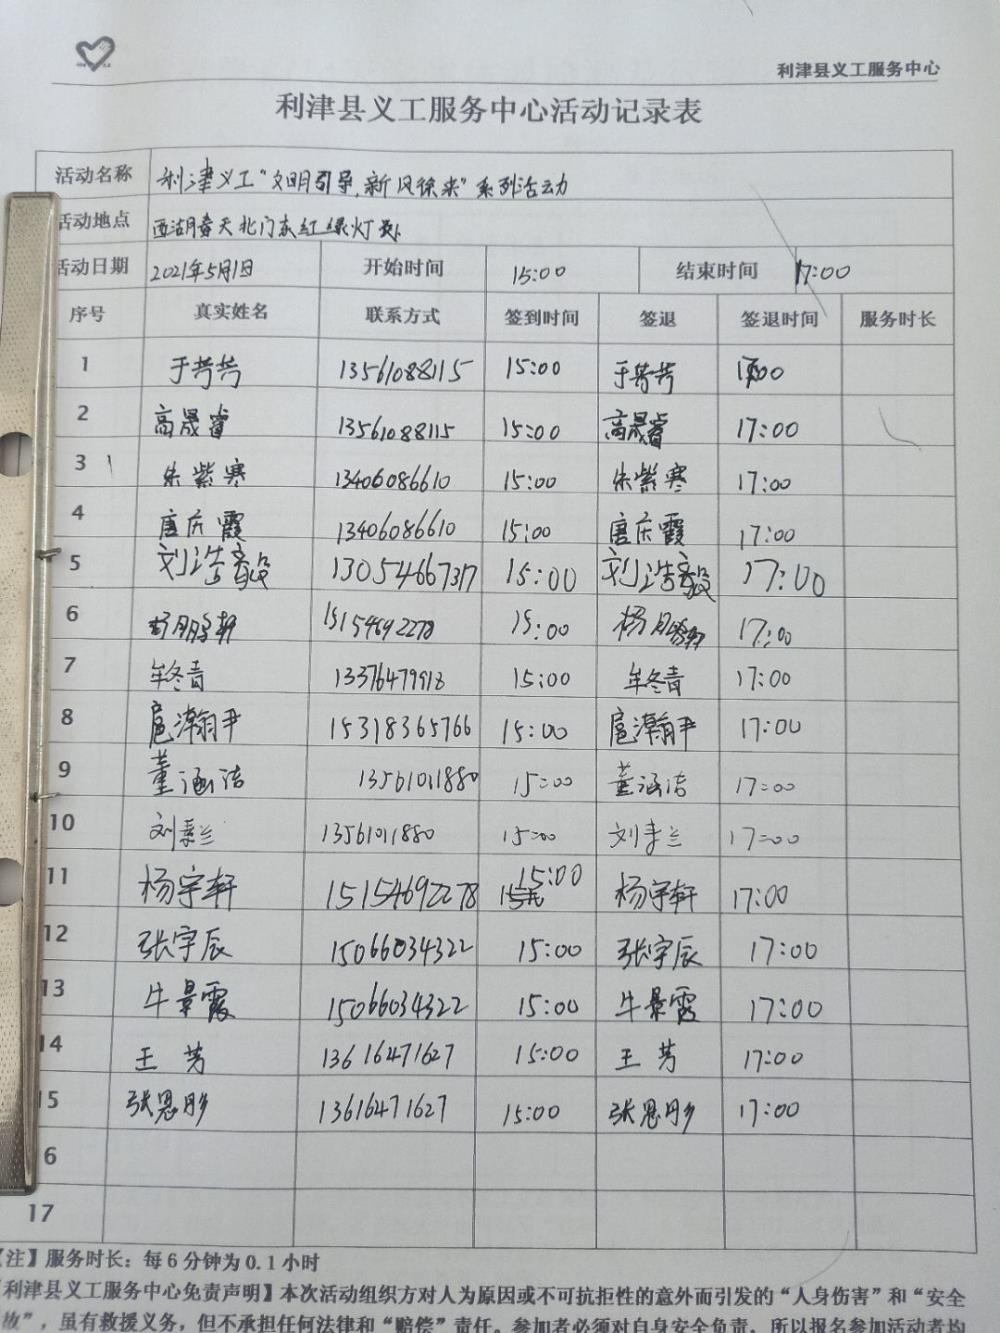 利津县义工服务中心
利津县义工服务中心活动记录表
活动名称 利津义工"文明引导,新风徐来"系列活动
活动地点 西湖春天北门东红绿灯处
活动日期 2021年5月1日 开始时间 15:00 结束时间 17:00
序号 真实姓名 联系方式 签到时间 签退 签退时间 服务时长
1 于芳芳 13561088115 15:00 于芳芳 17:00
2 高晟睿 13561088115 15:00 高晟睿 17:00
3 朱紫寒 13406086610 15:00 朱紫寒 17:00
4 唐庆霞 13406086610 15:00 唐庆霞 17:00
5 刘浩毅 13054667317 15:00 刘浩毅 17:00
6 杨鹏轩 15154692278 15:00 17:00
7 牟冬青 13376479918 15:00 牟冬青 17:00
8 扈瀚尹 15318365766 15:00 扈瀚尹 17:00
9 董涵洁 13561011880 15:00 董涵洁 17:00
10 刘素兰 13561011880 15:00 刘素兰 17:00
11 杨宇轩 15154692278 15:00 杨宇轩 17:00
12 张宇辰 15066034322 15:00 张宇辰 17:00
13 牛景霞 15066034322 15:00 牛景霞 17:00
14 王芳 13616471627 15:00 王芳 17:00
15 张恩彤 13616471627 15:00 张恩彤 17:00
6
17
【注】服务时长:每6分钟为0.1小时
利津县义工服务中心免责声明】本次活动组织方对人为原因或不可抗拒性的意外而引发的“人身伤害”和“安全
故”,虽有救援义务,但不承担任何法律和“赔偿”责任。参加者必须对自身安全负责,所以报名参加活动者均